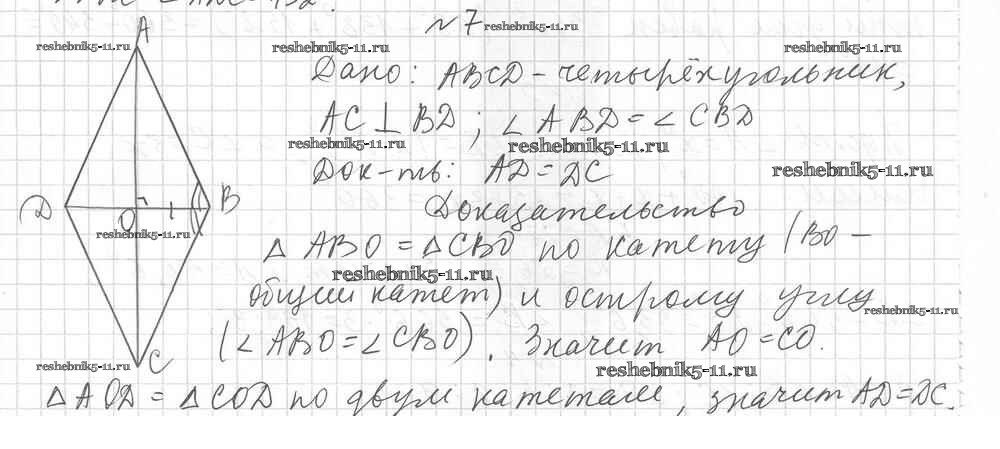 №7
reshebnik5-11.ru
A
reshebnik5-11.ru
reshebnik5-11.ru
reshebnik5-11.ru
Дано: ABCD - четырёхугольник,
AC ⊥ BD ; ∠ ABD = ∠ CBD
reshebnik5-11.ru
reshebnik5-11.ru
Док-ть: AD = DC
reshebnik5-11.ru
D
O
B
reshebnik5-11.ru
Доказательство
△ ABO = △ CBO по катету (BO -
reshebnik5-11.ru
общий катет) и острому углу
reshebnik5-11.ru
(∠ ABO = ∠ CBO). Значит AO = CO.
C
reshebnik5-11.ru
reshebnik5-11.ru
△ AOD = △ COD по двум катетам, значит AD = DC.